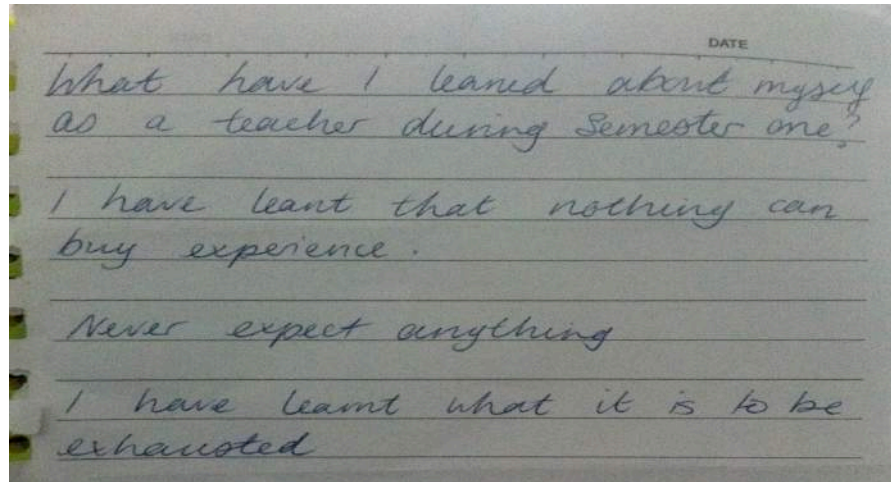 DATE
What have I learned about myself
as a teacher during Semester one?
I have learnt that nothing can
buy experience.
Never expect anything
I have learnt what it is to be
exhausted